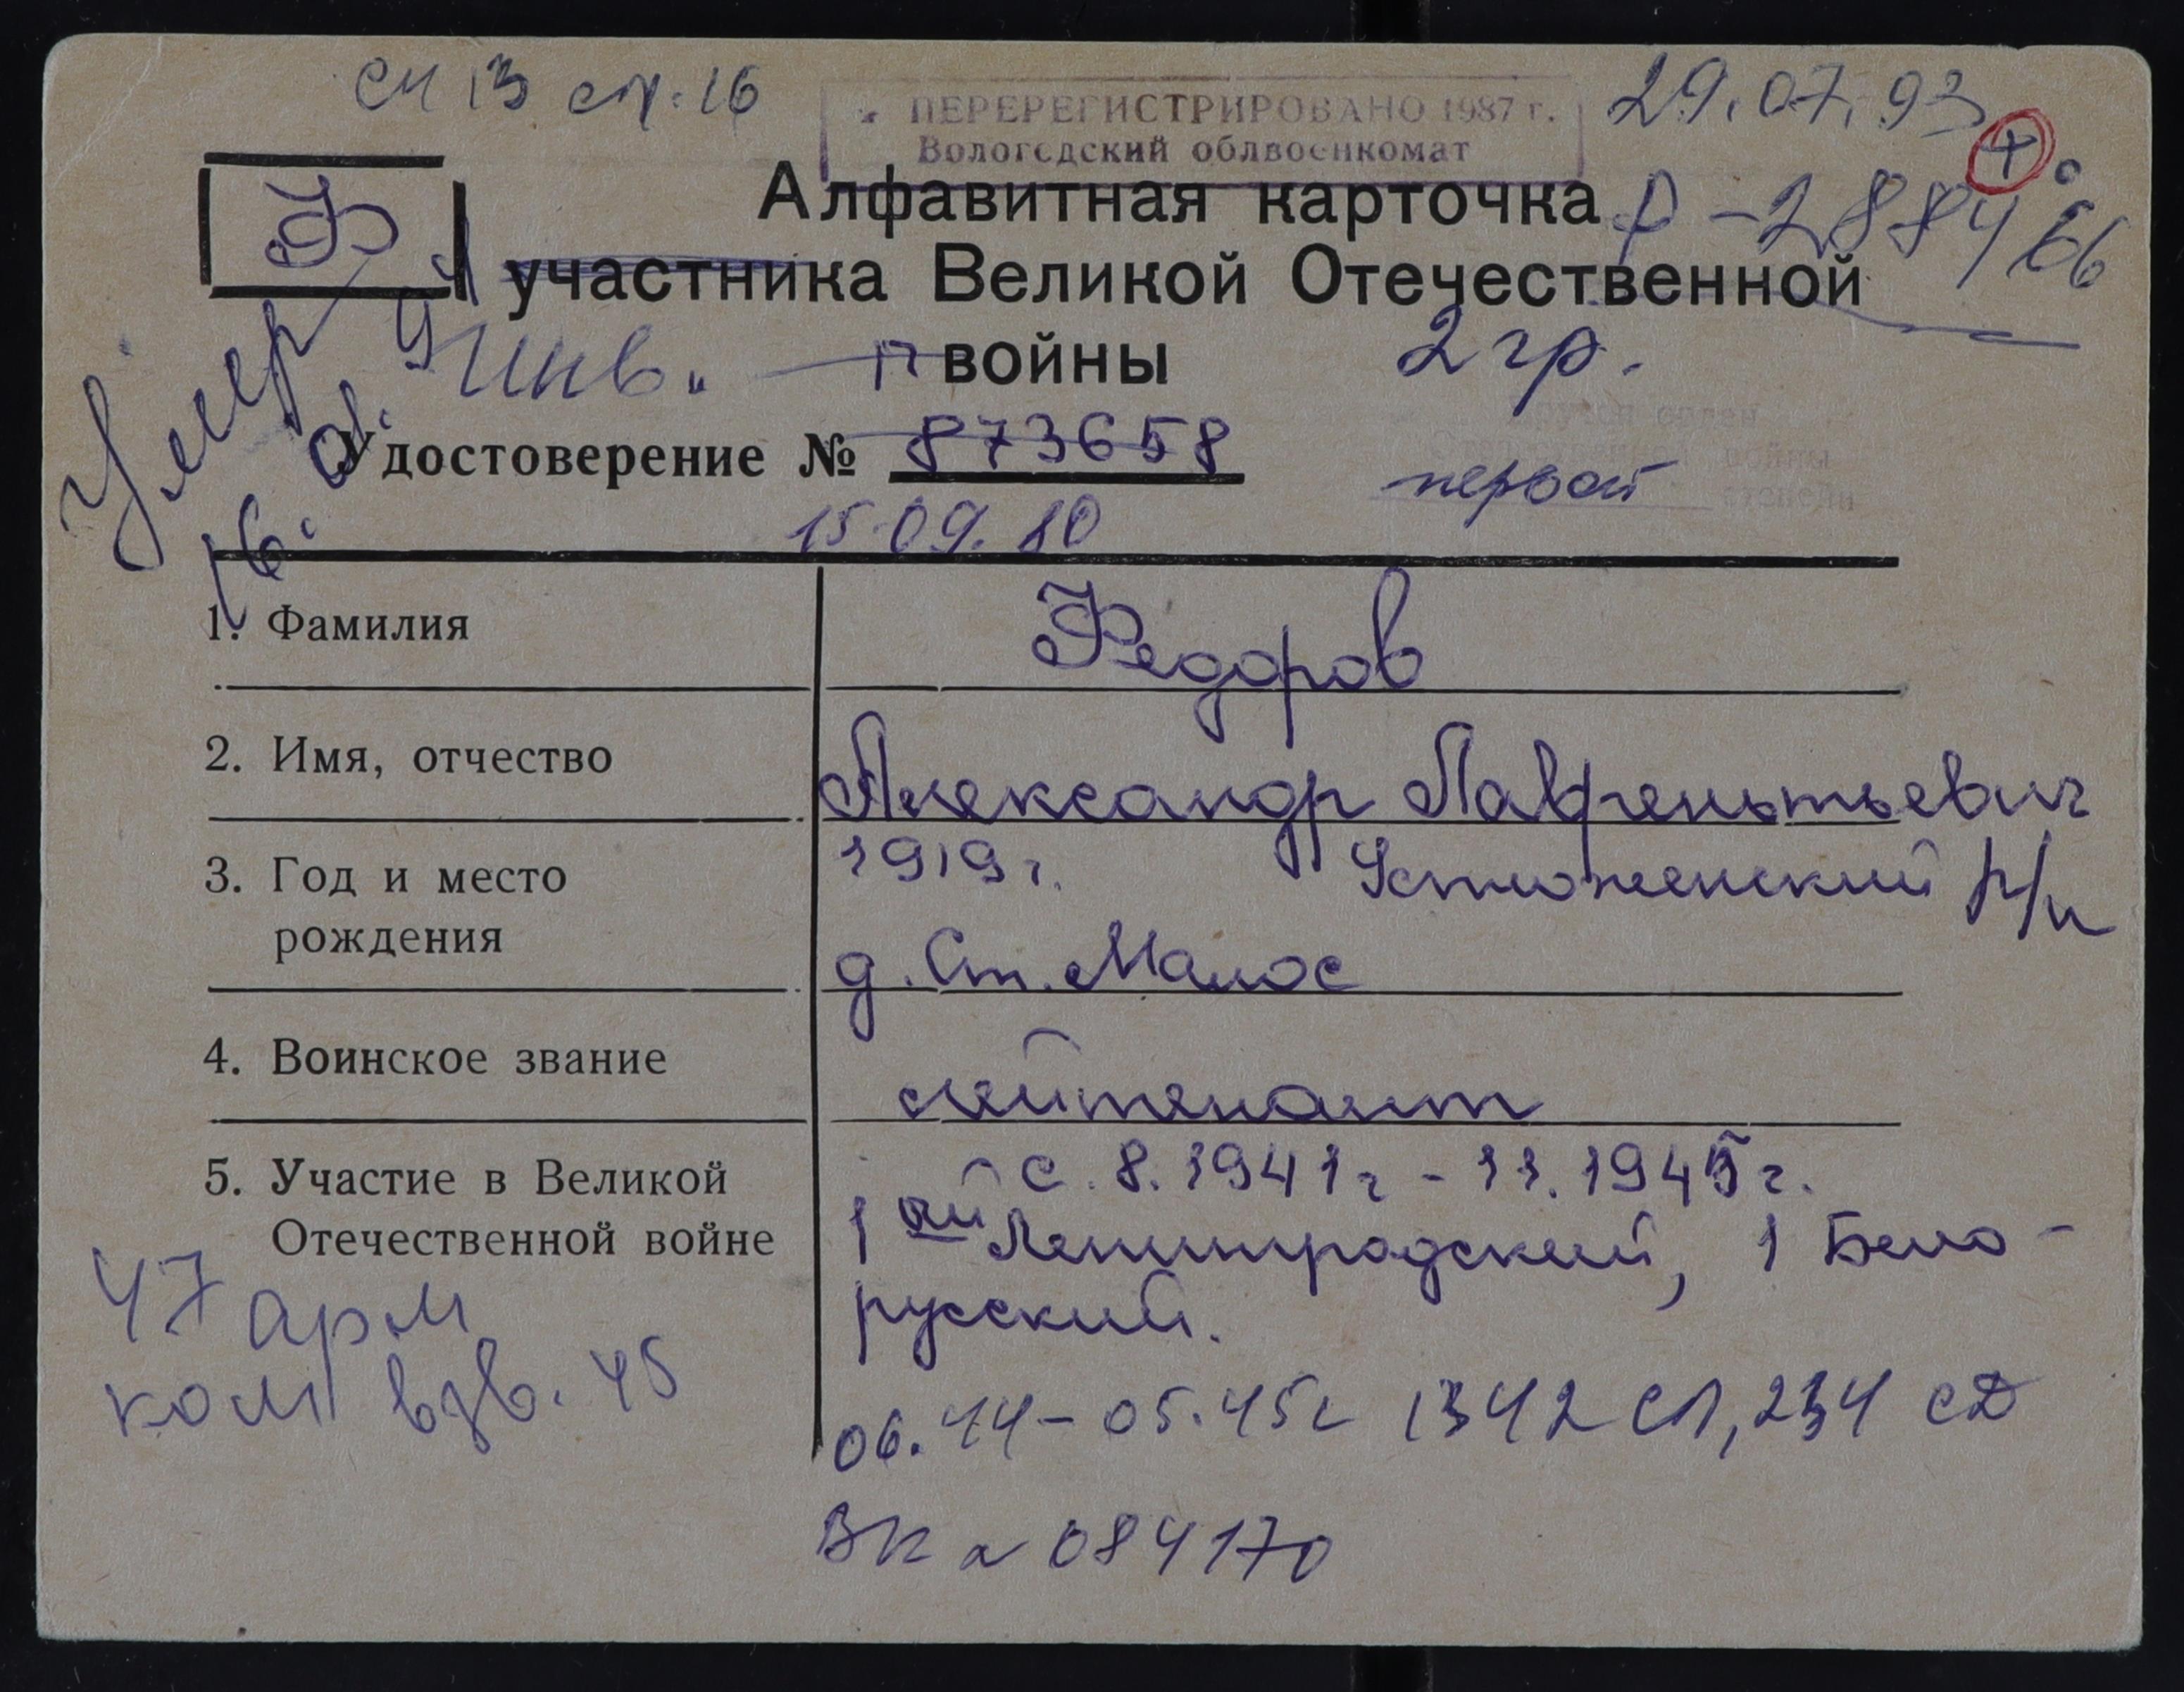 сп 13 ст. 16
ПЕРЕРЕГИСТРИРОВАНО 1987 г.
Вологодский облвоенкомат
29.07.93
+
Ф
Алфавитная карточка
р-2884
участника Великой Отечественной
Инв. войны 2 гр.
Умер
16.01.94
Удостоверение № 873658
первой степени
15.09.80
1. Фамилия Федоров
2. Имя, отчество Александр Лаврентьевич
3. Год и место 1919 г. Устюженский р/н
рождения д. Ст. Малос
4. Воинское звание лейтенант
5. Участие в Великой с 8.1941 г - 11.1945 г.
Отечественной войне 1ый Ленинградский, 1 Бело-
русский.
47 арм
ком взв. 45
06.44 - 05.45 г 1342 СП, 234 СД
ВК № 084170